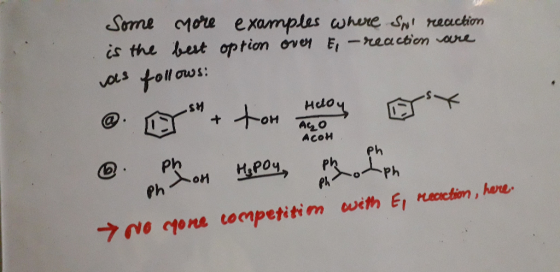 Some more examples where SN1 reaction
is the best option over E1 - reaction are
as follows:
(a). SH + OH HClO4 Ac2O AcOH S
(b). Ph Ph OH H3PO4 Ph Ph O Ph Ph
→ No more competition with E1 reaction, here.